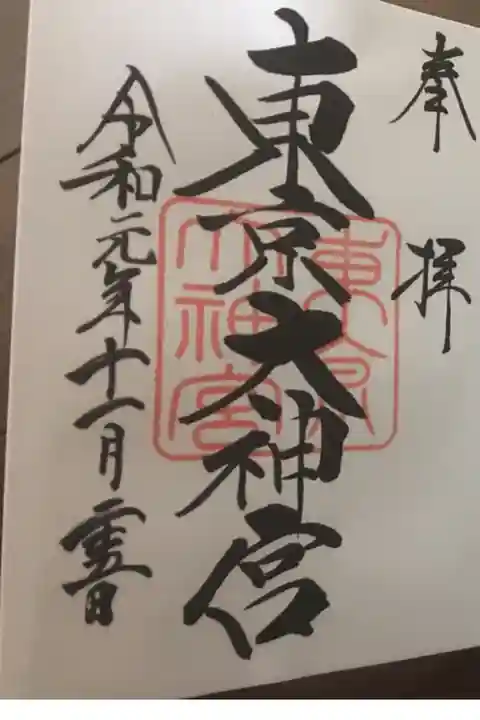 奉拝
東京大神宮
令和元年十一月日
東京
大神宮